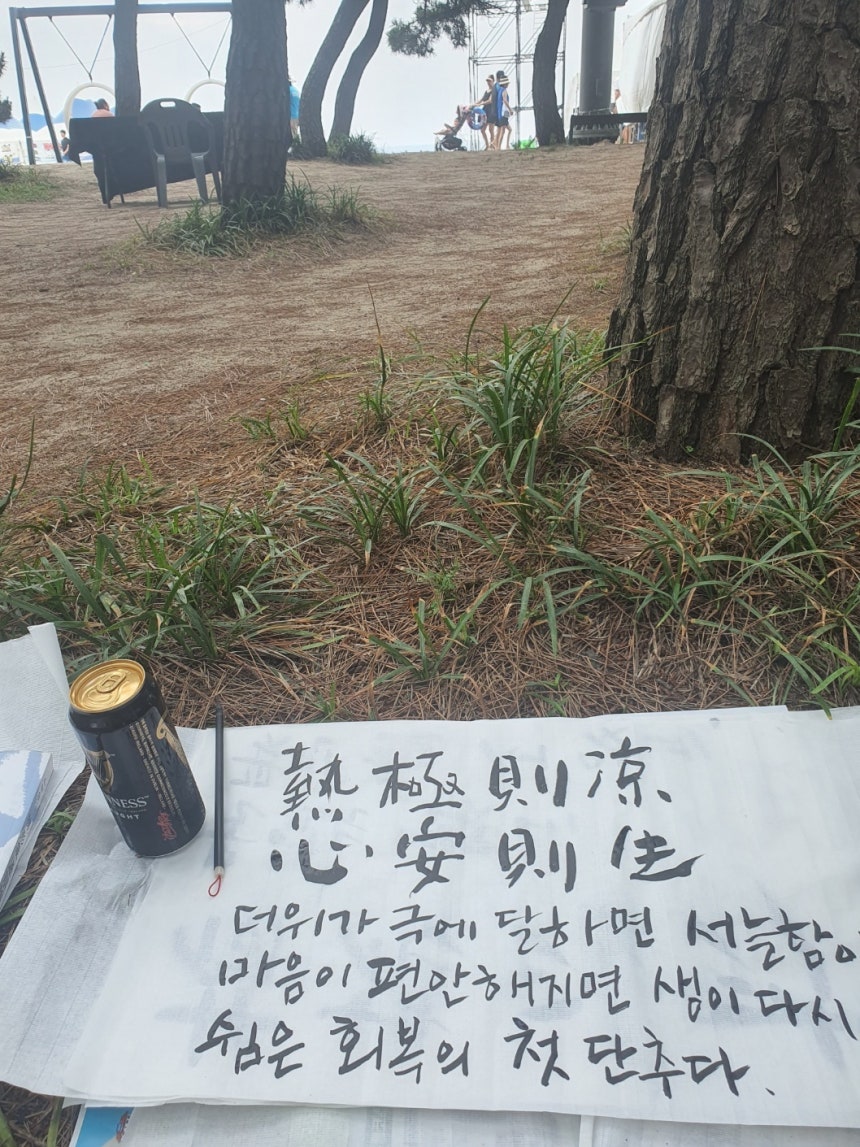 熱極則凉
心安則生
더위가 극에 달하면 서늘함이
마음이 편안해지면 생이 다시
쉼은 회복의 첫 단추다.